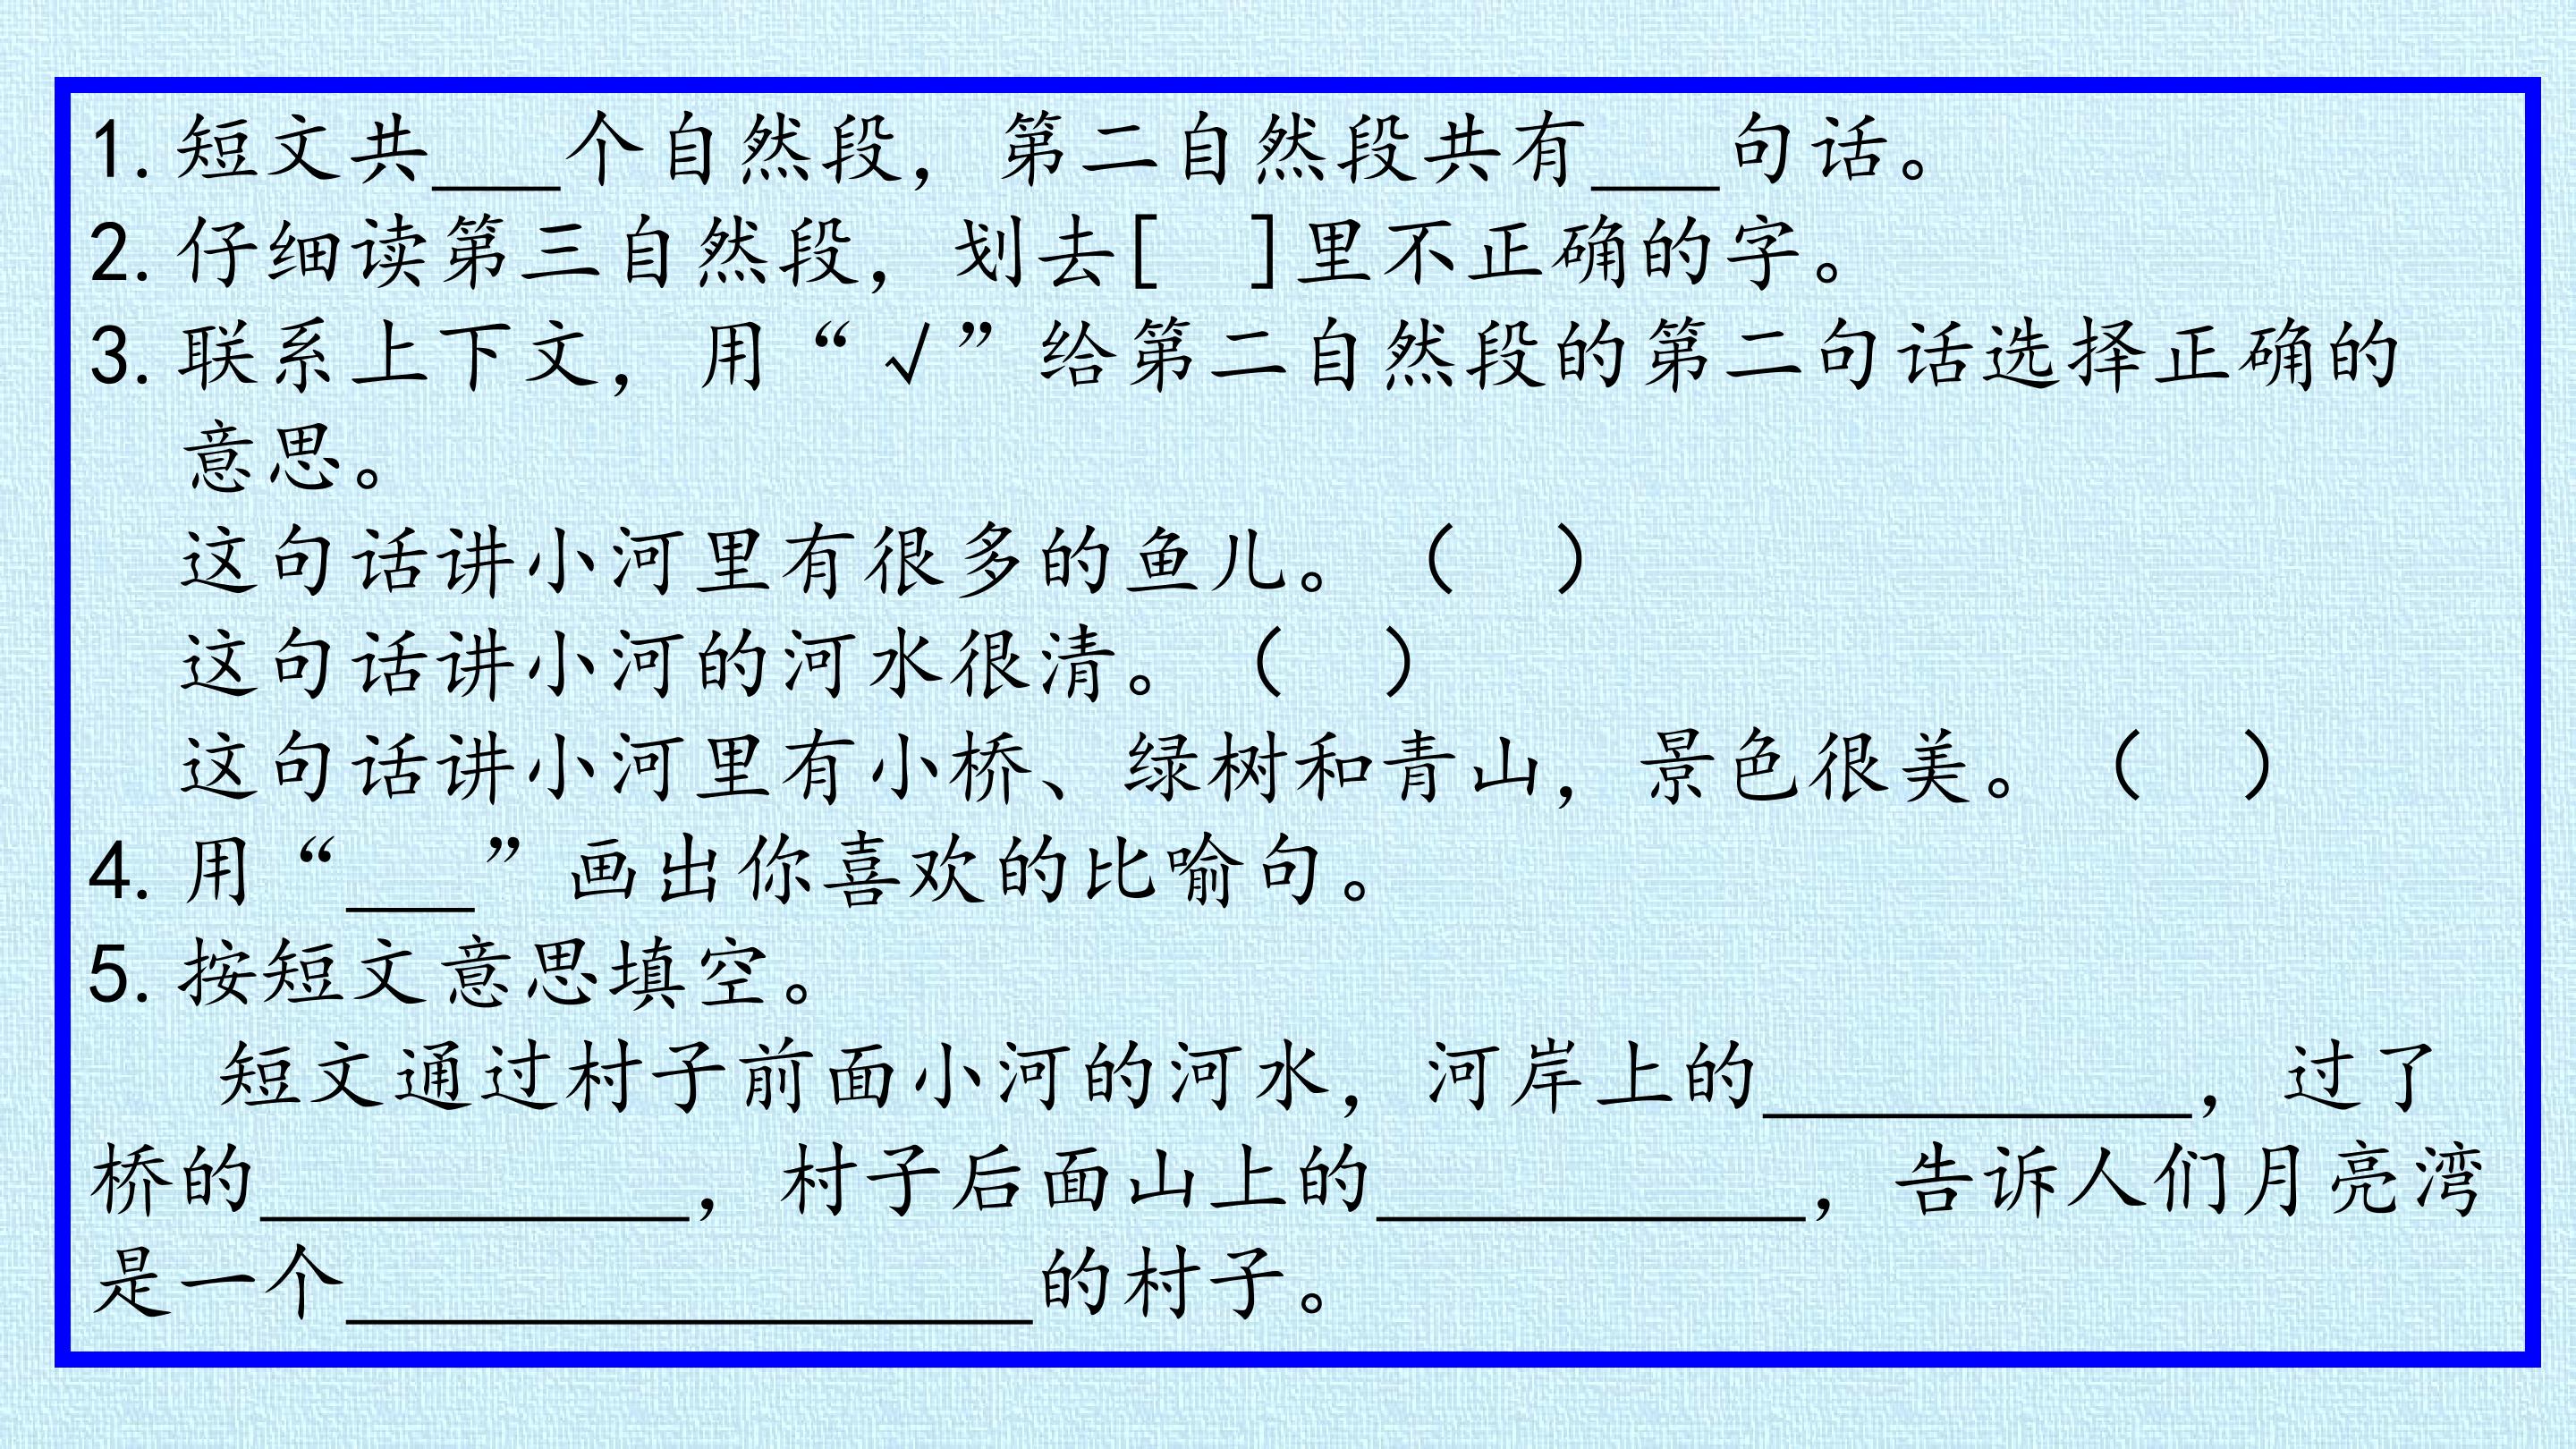 1.短文共___个自然段，第二自然段共有___句话。
2.仔细读第三自然段，划去[  ]里不正确的字。
3.联系上下文，用“√”给第二自然段的第二句话选择正确的
意思。
这句话讲小河里有很多的鱼儿。（  ）
这句话讲小河的河水很清。（  ）
这句话讲小河里有小桥、绿树和青山，景色很美。（  ）
4.用“___”画出你喜欢的比喻句。
5.按短文意思填空。
短文通过村子前面小河的河水，河岸上的__________，过了
桥的__________，村子后面山上的__________，告诉人们月亮湾
是一个________________的村子。